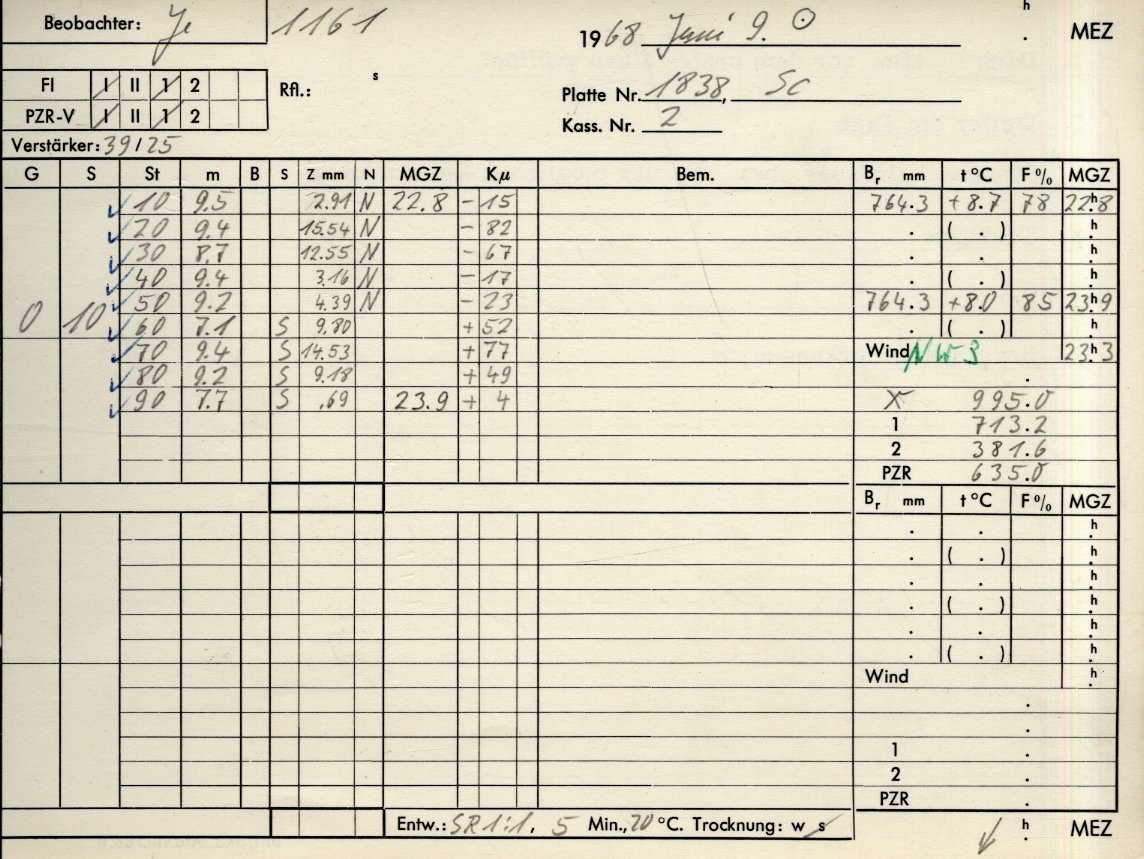 Beobachter: Je 1161 1968 Juni 9. ⊙ h . MEZ
FI I II 1 2 Rfl.: s
Platte Nr. 1838, Sc
PZR-V I II 1 2
Kass. Nr. 2
Verstärker: 39/25
G S St m B S Z mm N MGZ Kμ Bem. Br mm t °C F % MGZ
10 9.5 2.91 N 22.8 - 15 764.3 +8.7 78 22h8
20 9.4 15.54 N - 82 . ( . ) h
30 8.7 12.55 N - 67 . . h
40 9.4 3.16 N - 17 . ( . ) h
50 9.2 4.39 N - 23 764.3 +8.0 85 23h9
0 10 60 7.1 S 9.80 + 52 . ( . ) h
70 9.4 S 14.53 + 77 Wind NW 3 23h3
80 9.2 S 9.18 + 49 .
90 7.7 S .69 23.9 + 4 X 995.0
1 713.2
2 381.6
PZR 635.0
Br mm t °C F % MGZ
. . h
. ( . ) h
. . h
. ( . ) h
. . h
. ( . ) h
Wind h
.
.
1 .
2 .
PZR .
Entw.: SR 1:1, 5 Min., 20 °C. Trocknung: w s h . MEZ